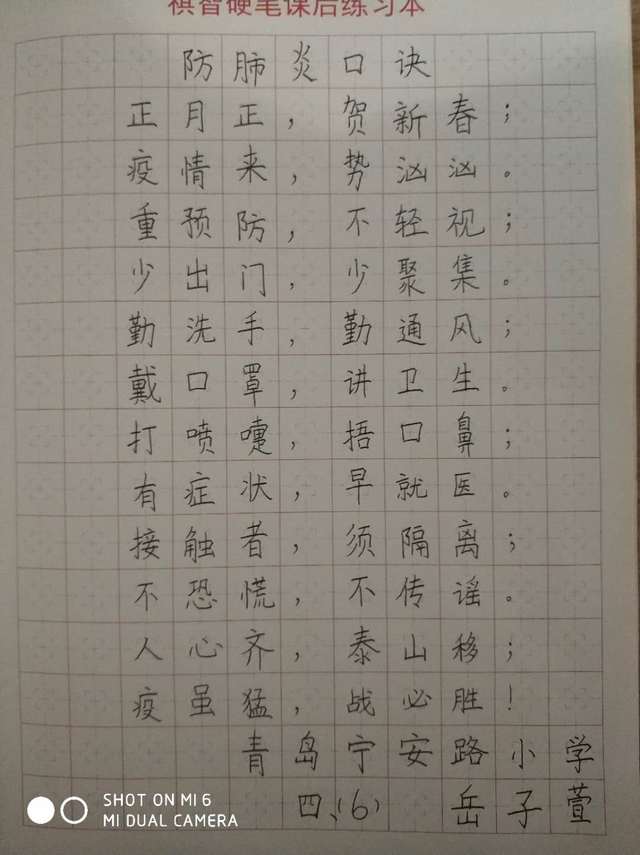 祺智硬笔课后练习本
防肺炎口诀
正月正，贺新春；
疫情来，势汹汹。
重预防，不轻视；
少出门，少聚集。
勤洗手，勤通风；
戴口罩，讲卫生。
打喷嚏，捂口鼻；
有症状，早就医。
接触者，须隔离；
不恐慌，不传谣。
人心齐，泰山移；
疫虽猛，战必胜！
青岛宁安路小学
四、(6) 岳子萱
SHOT ON MI 6
MI DUAL CAMERA